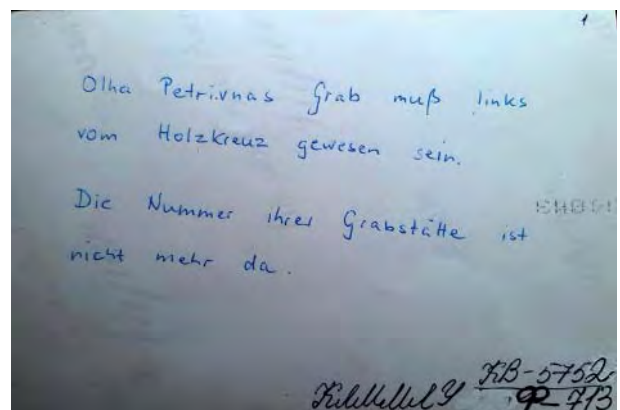 1
Olha Petrivnas Grab muß links
vom Holzkreuz gewesen sein.
Die Nummer ihrer Grabstätte ist
nicht mehr da.
КВ-5752